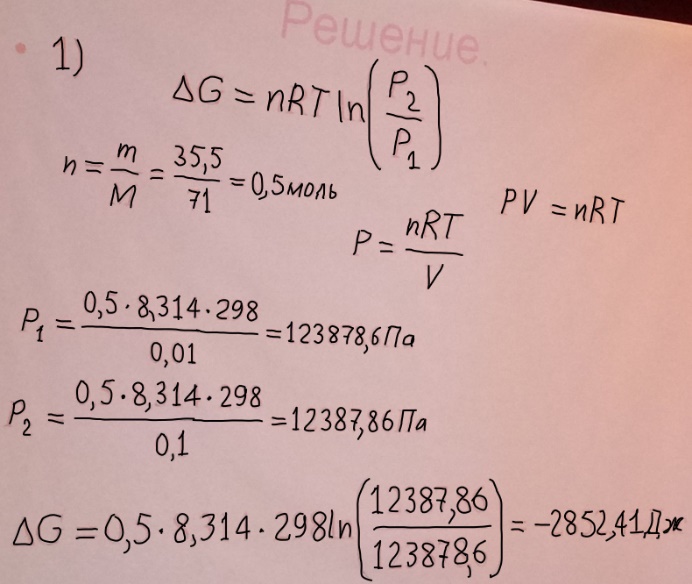 Решение.
1)
ΔG = nRT ln(P₂/P₁)
n = m/M = 35,5/71 = 0,5 моль
PV = nRT
P = nRT/V
P₁ = 0,5·8,314·298/0,01 = 123878,6 Па
P₂ = 0,5·8,314·298/0,1 = 12387,86 Па
ΔG = 0,5·8,314·298ln(12387,86/123878,6) = -2852,41 Дж